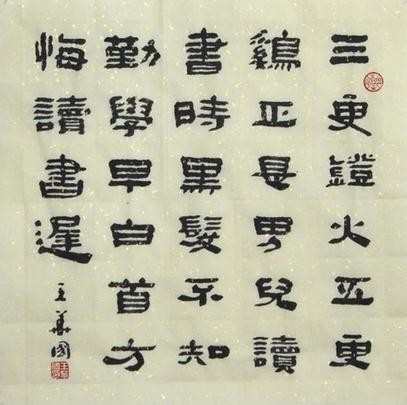 三更鐙火五更
鷄正是男兒讀
書時黑髮不知
勤學早白首方
悔讀書遲
王華國